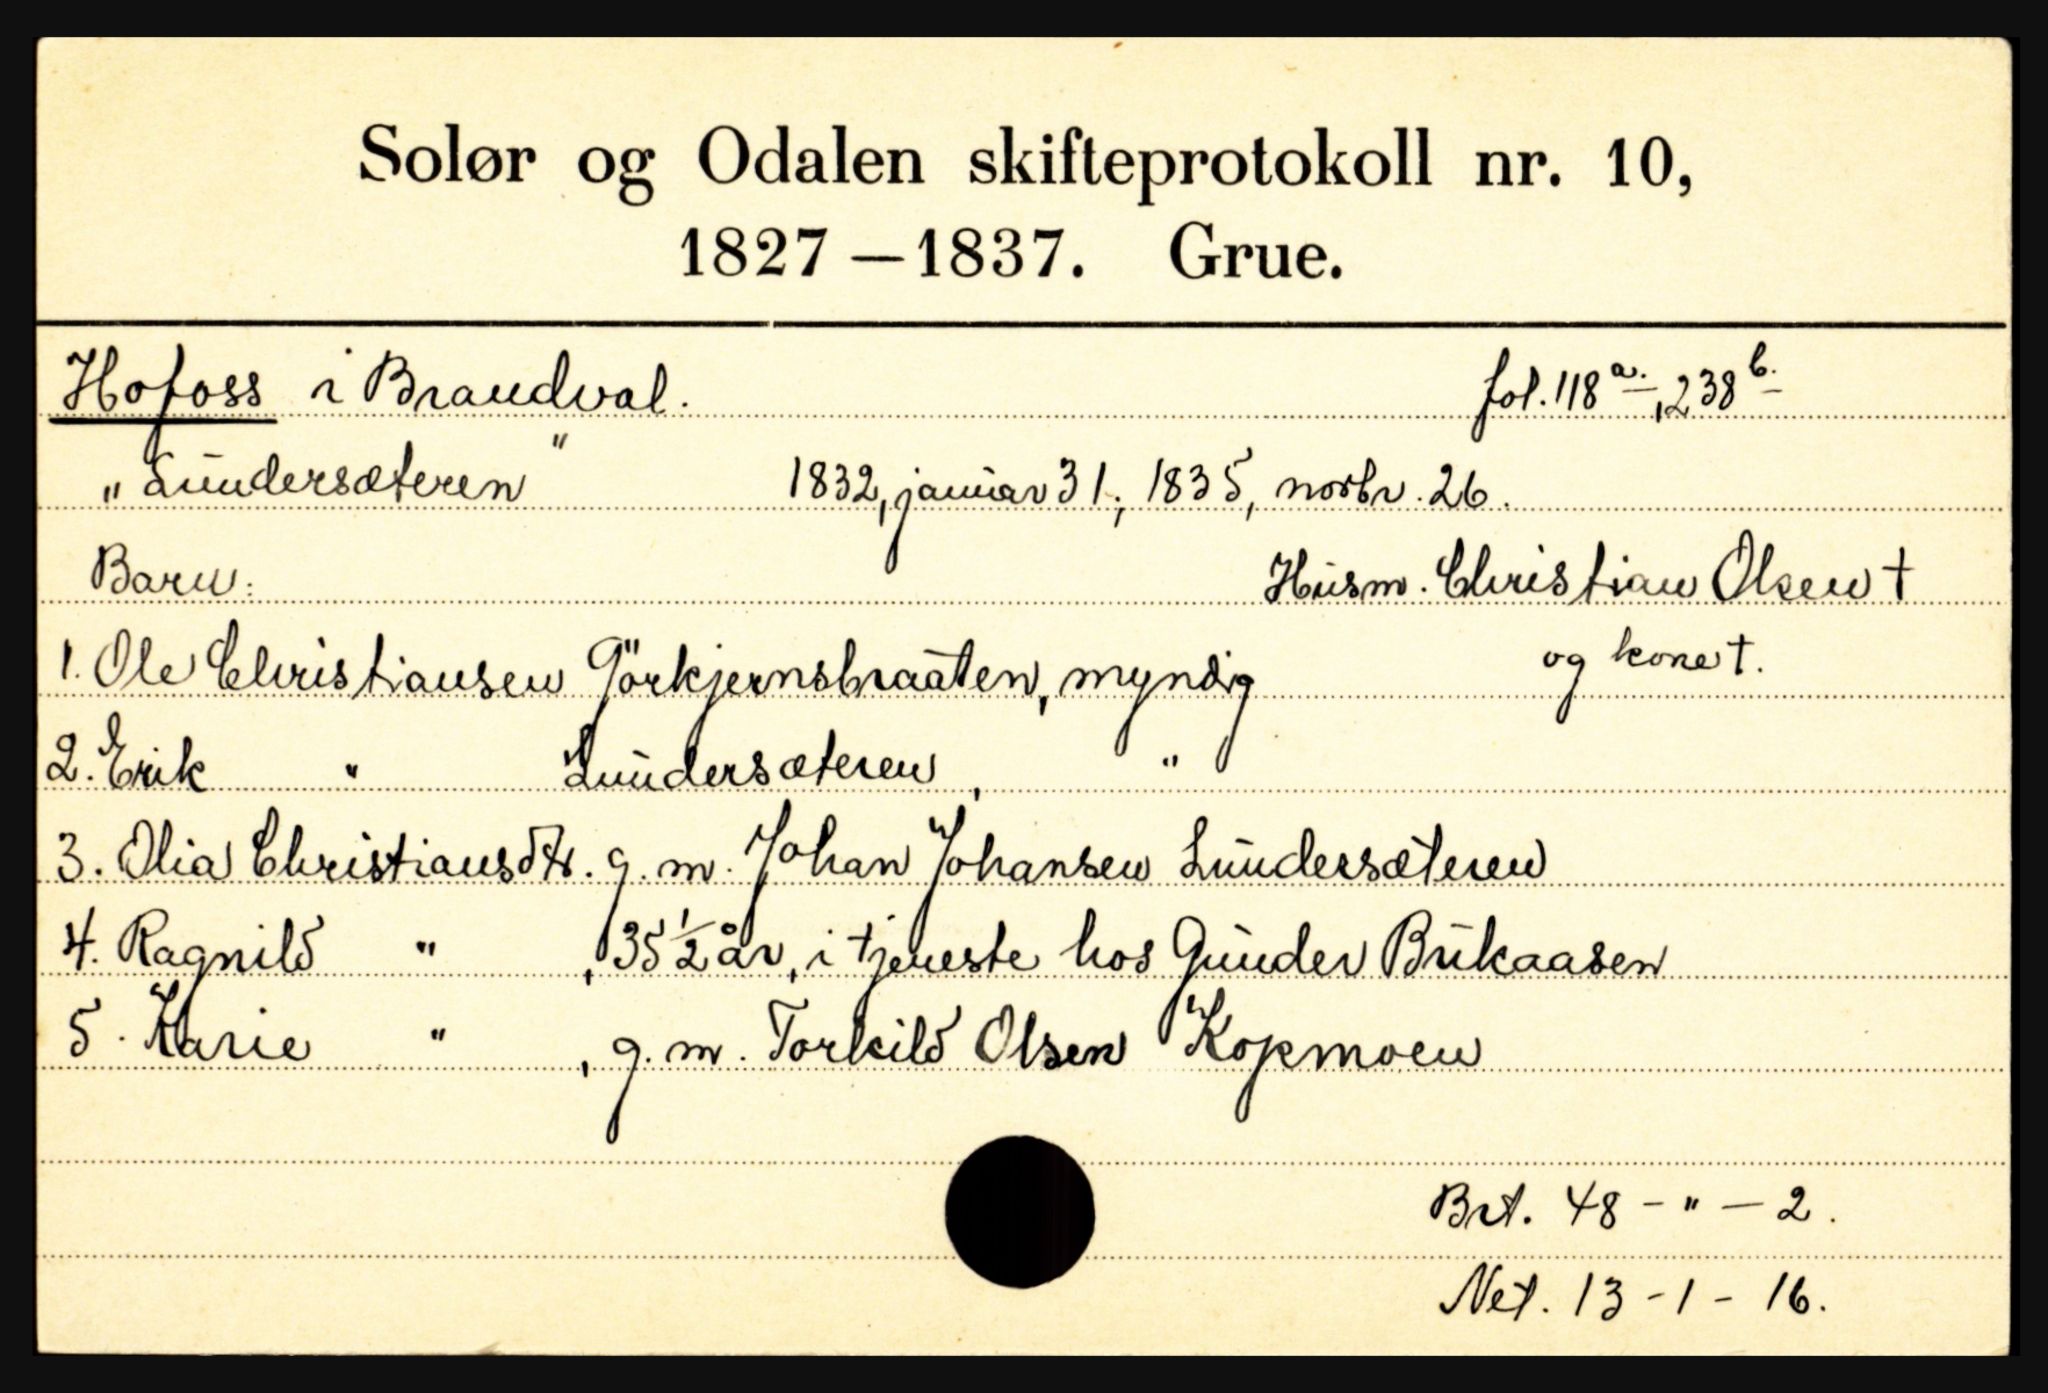 Solør og Odalen skifteprotokoll nr. 10,
1827 — 1837. Grue.
Hofoss i Brandval. fol. 118 a., 238 b.
"Lundersæteren" 1832, januar 31; 1835, novbr. 26.
Barn: Husm. Christian Olsen †
og kone †.
1. Ole Christiansen Görkjernsbraaten, myndig
2. Erik " Lundersæteren, "
3. Olia Christiansdtr. g. m. Johan Johansen Lundersæteren
4. Ragnild ", 35 1/2 år, i tjeneste hos Gunder Bukaasen
5. Karie ", g. m. Torkild Olsen Kopmoen
Brt. 48 - " - 2.
Net. 13 - 1 - 16.